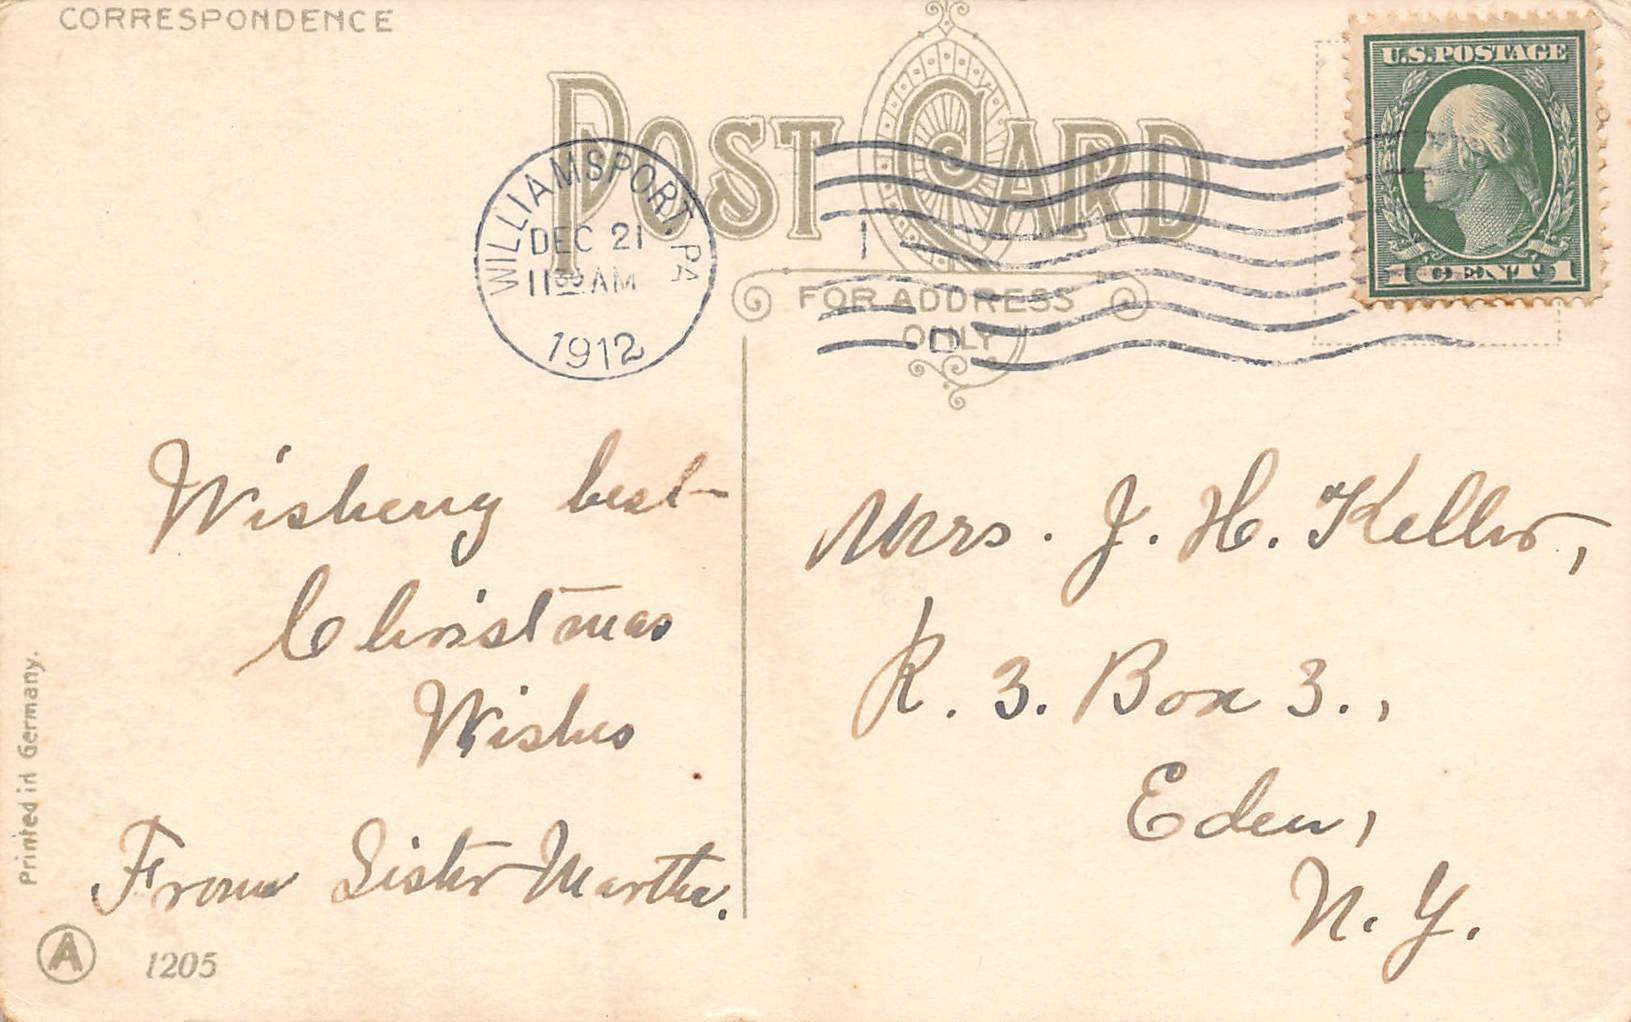 CORRESPONDENCE
POST CARD
U.S. POSTAGE
1 CENT 1
WILLIAMSPORT, PA
DEC 21
11 30 AM
1912
FOR ADDRESS
ONLY
Wisheng best
Christmas
Wishes
From Sister Martha.
Mrs. J. H. Keller,
R. 3. Box 3.,
Eden,
N. Y.
Printed in Germany.
A 1205